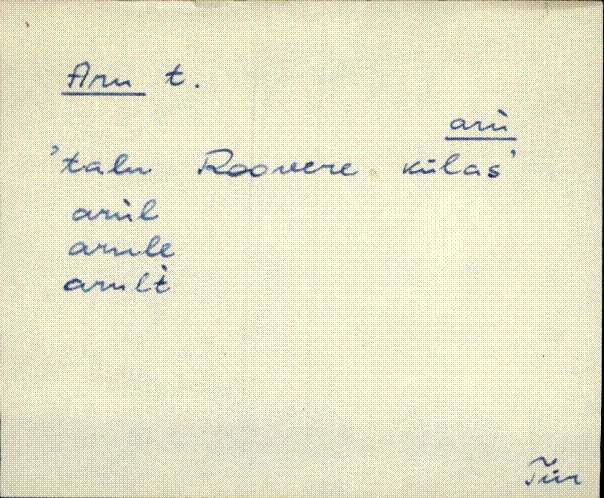 Aru t.
arù
'talu Roovere külas'
arùl
arule
arult
Tür